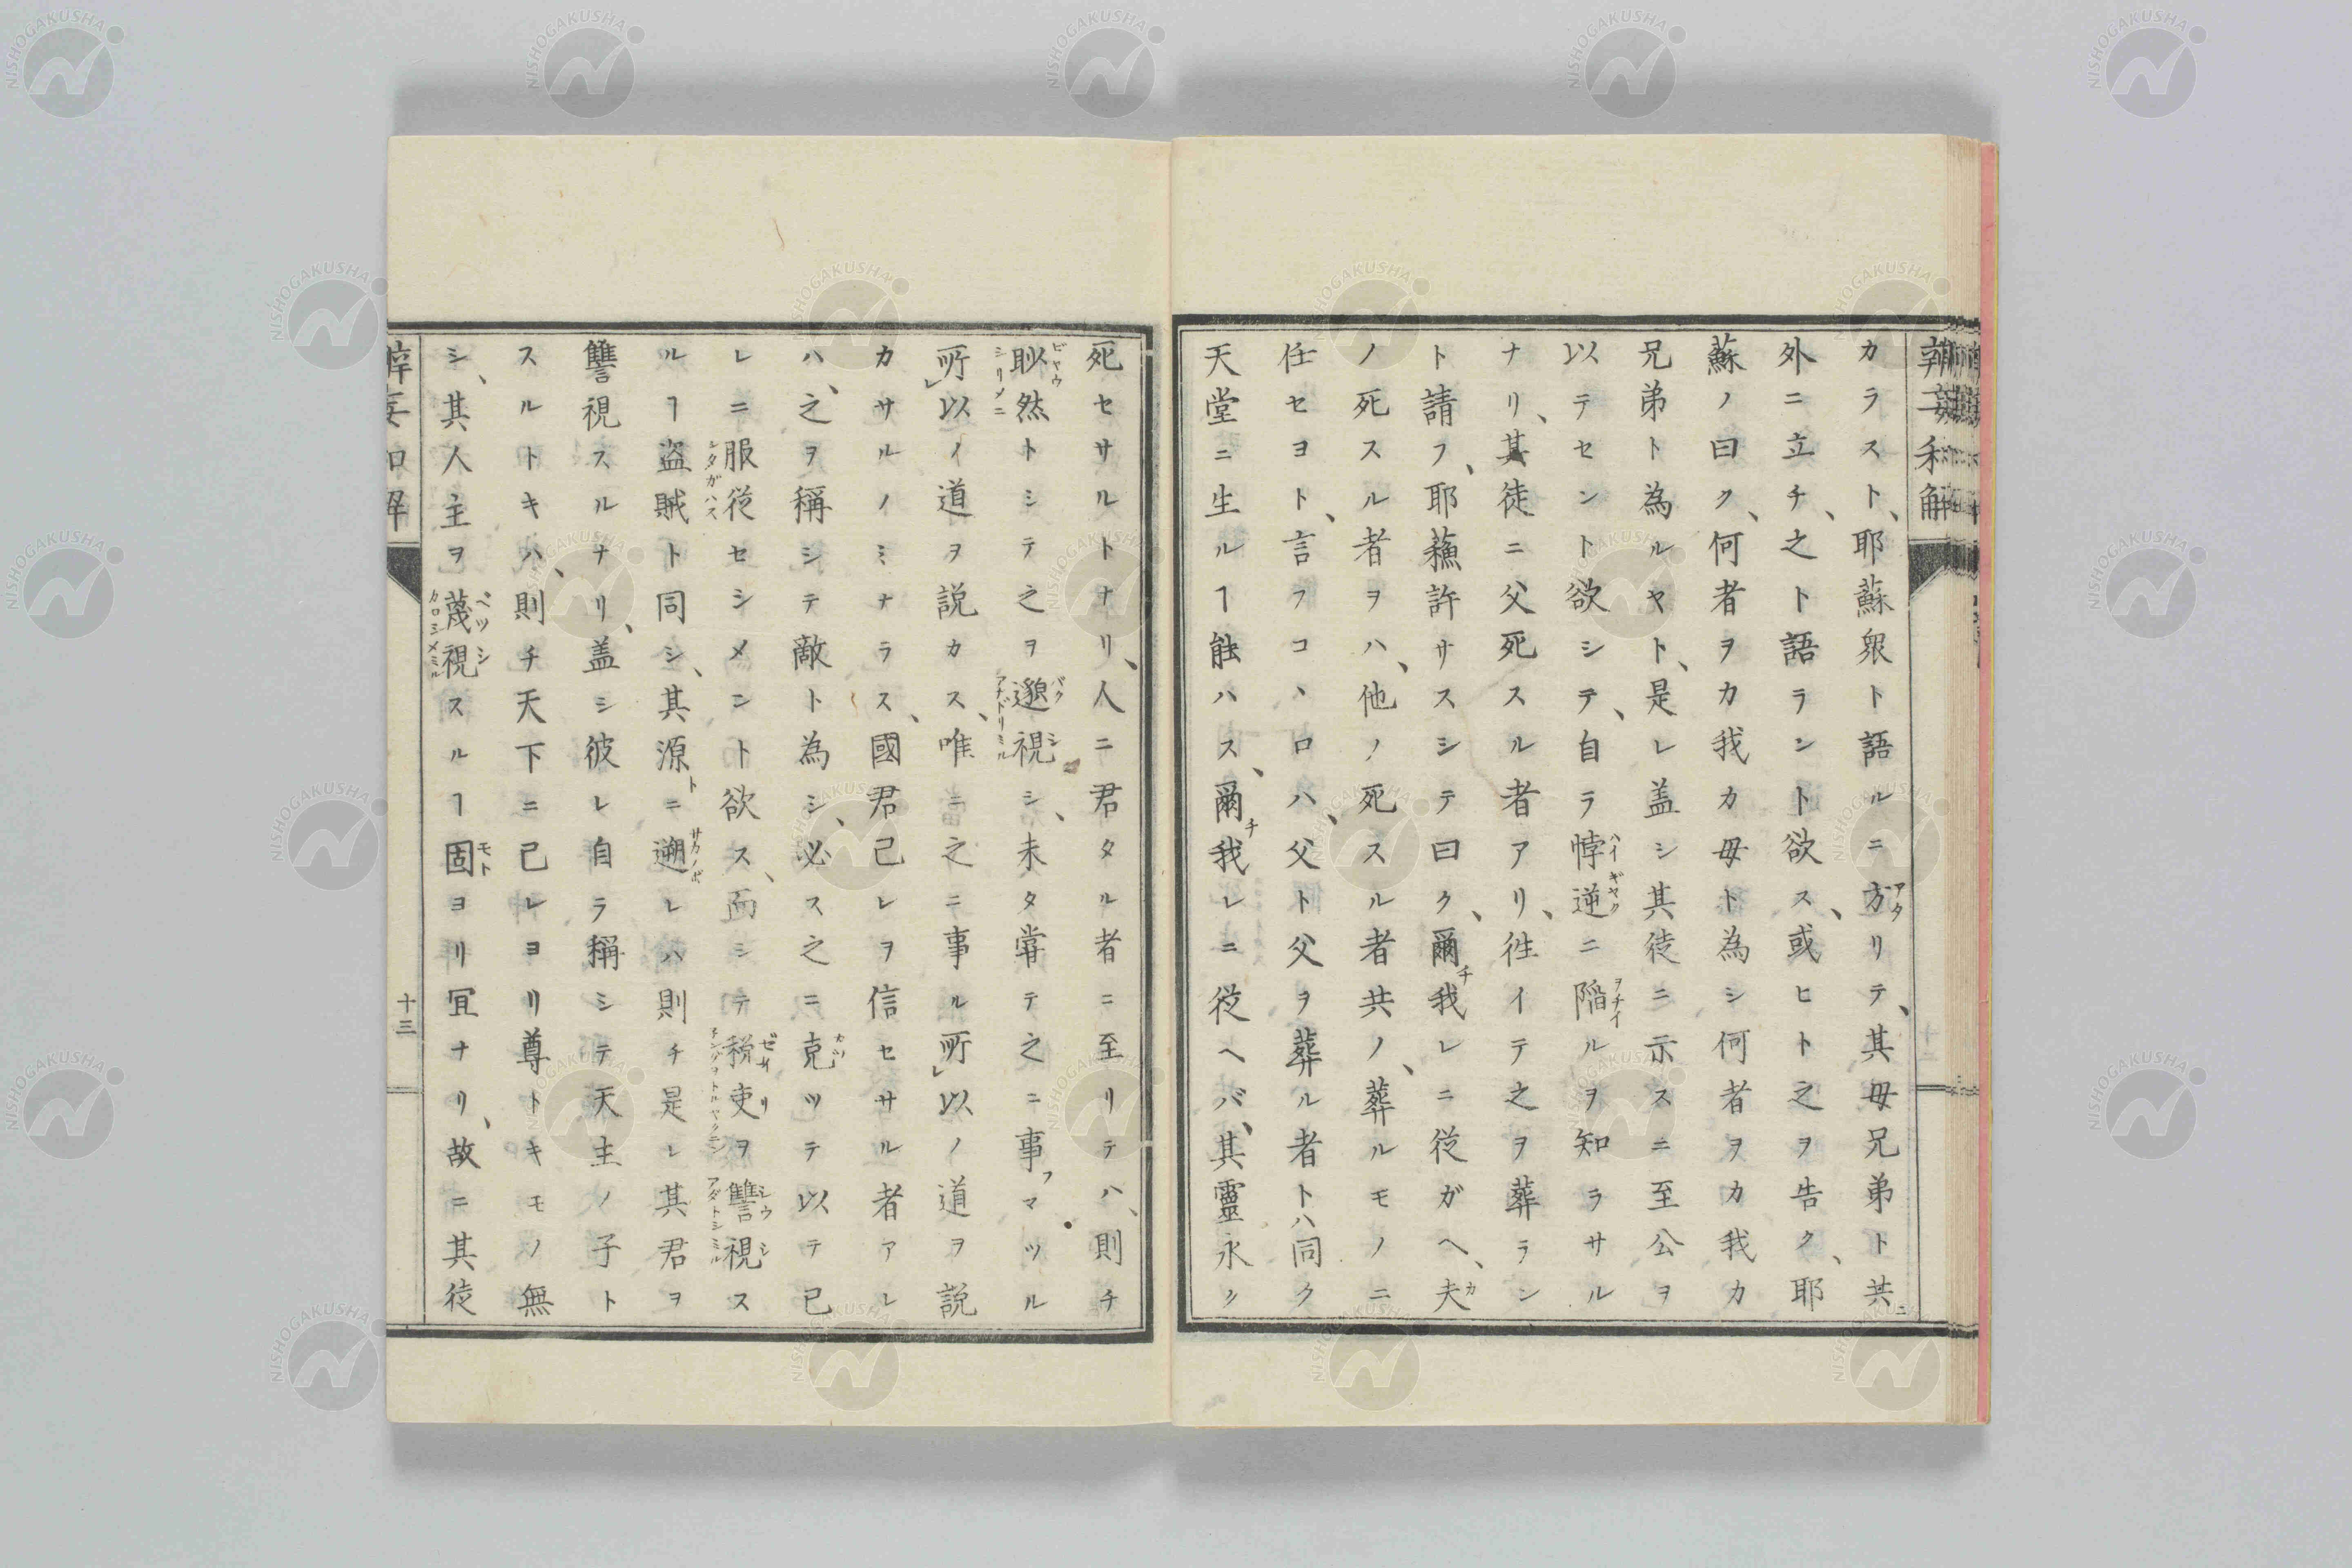 辨妄和解
カラスト、耶蘇衆ト語ルニ方リテ、其母兄弟ト共ニ
外ニ立チ、之ト語ラント欲ス、或ヒト之ヲ告ク、耶
蘇ノ曰ク、何者ヲカ我カ母ト為シ何者ヲカ我カ
兄弟ト為ルヤト、是レ盖シ其徒ニ示スニ至公ヲ
以テセント欲シテ、自ラ悖逆ニ陷ルヲ知ラサル
ナリ、其徒ニ父死スル者アリ、徃イテ之ヲ葬ラン
ト請フ、耶蘓許サスシテ曰ク、爾チ我レニ從ガヘ、夫
ノ死スル者ヲハ、他ノ死スル者共ノ、葬ルモノニ
任セヨト、言フコヽロハ、父ト父ヲ葬ル者トハ同ク
天堂ニ生ルヿ能ハス、爾チ我レニ從ヘバ、其靈永ク
死セサルトナリ、人ニ君タル者ニ至リテハ、則チ
眇然トシテ之ヲ邈視シ、未タ甞テ之ニ事フマツル
所以ノ道ヲ説カス、唯ニ之ニ事ル所以ノ道ヲ説
カサルノミナラス、國君己レヲ信セサル者アレ
ハ、之ヲ稱シテ敵ト為シ、必ス之ニ克ツテ以テ已
レニ服從セシメント欲ス、而シテ税吏ヲ讐視ス
ルヿ盗賊ト同シ、其源トニ遡レハ則チ是レ其君ヲ
讐視スルナリ、盖シ彼レ自ラ稱シテ天主ノ子ト
スルトキハ、則チ天下ニ已レヨリ尊トキモノ無
シ、其人主ヲ蔑視スルヿ固ヨリ冝ナリ、故ニ其徒
十三